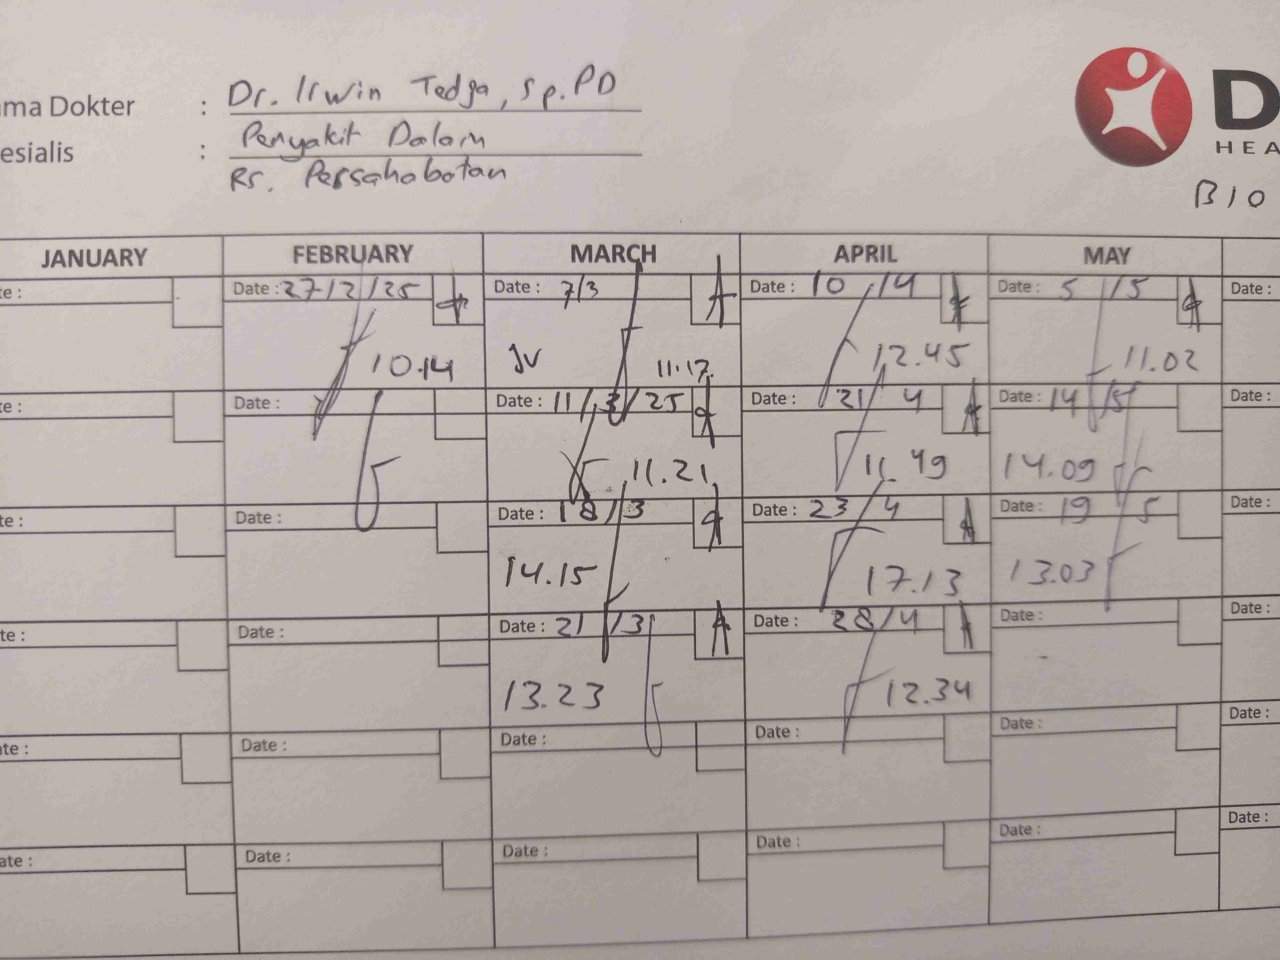 ama Dokter : Dr. Irwin Tedja, Sp.PD
esialis : Penyakit Dalam
Rs. Persahabatan
D
HEA
B10
JANUARY FEBRUARY MARCH APRIL MAY
te : Date : 27/2/25 Date : 7/3 Date : 10/4 Date : 5/5 Date :
10.14 JV 11.17 12.45 11.02
te : Date : Date : 11/3/25 Date : 21/4 Date : 14/5 Date :
11.21 11.49 14.09
te : Date : Date : 18/3 Date : 23/4 Date : 19/5 Date :
14.15 17.13 13.03
te : Date : Date : 21/3 Date : 28/4 Date : Date :
13.23 12.34
te : Date : Date : Date : Date : Date :
ate : Date : Date : Date : Date : Date :